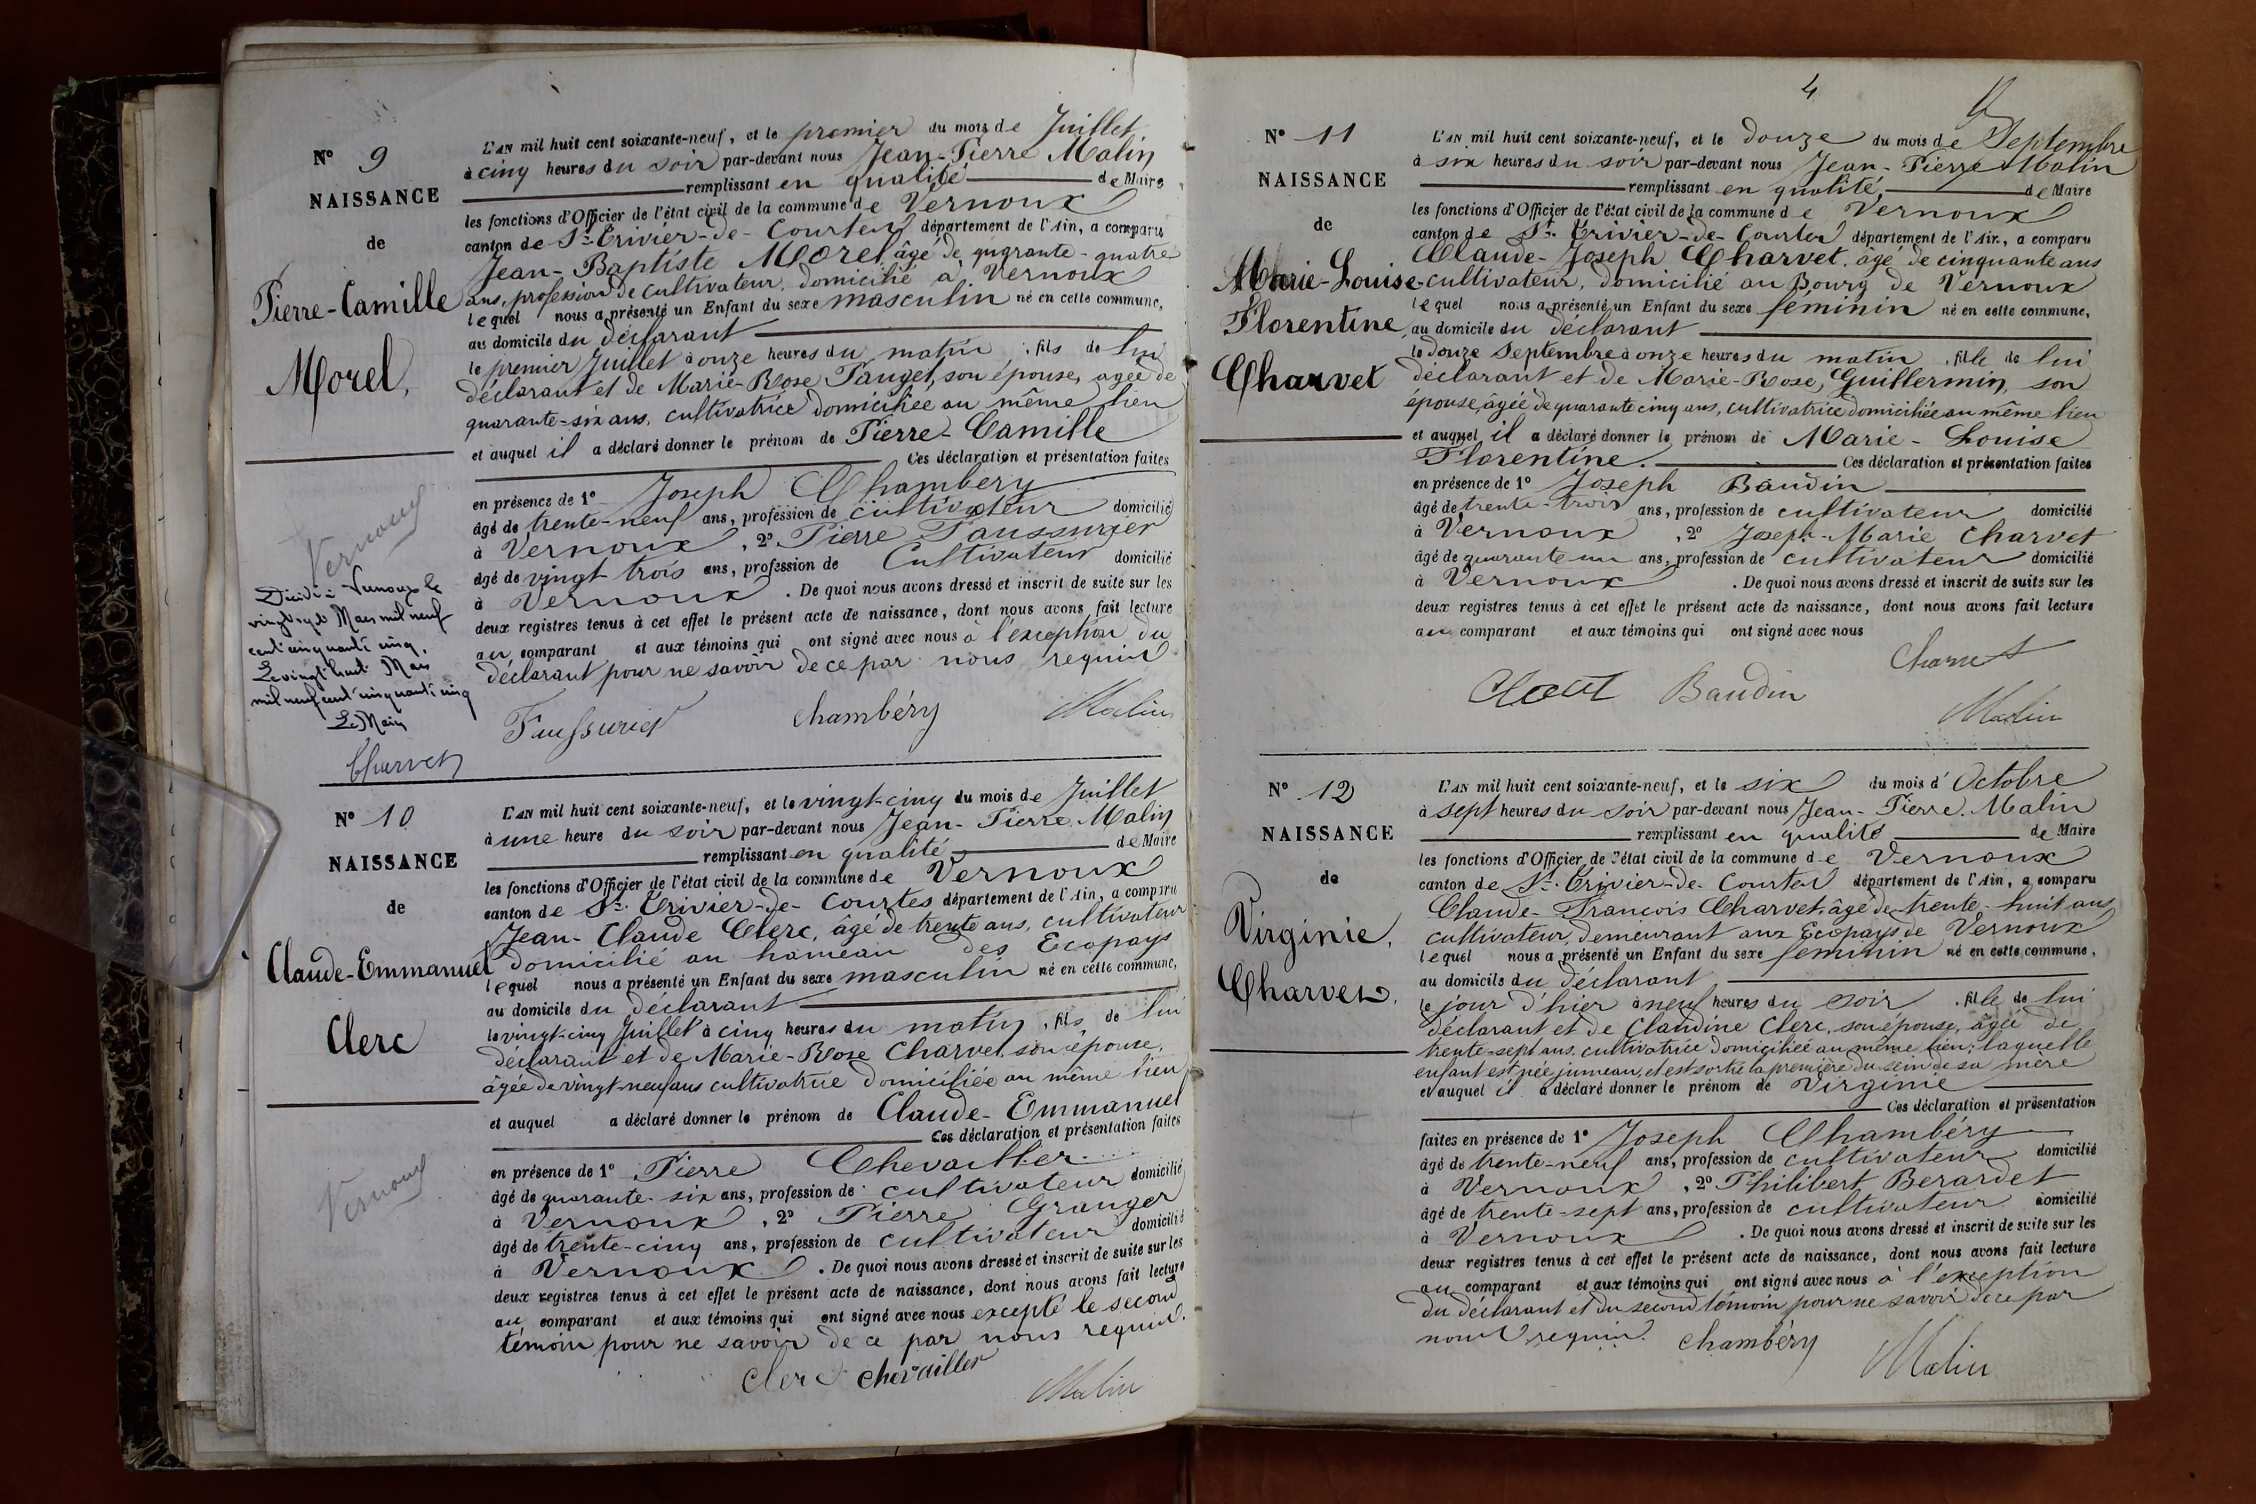 N° 9
NAISSANCE
de
Pierre-Camille
Morel,
L'AN mil huit cent soixante-neuf, et le premier du mois de Juillet
à cinq heures du soir par-devant nous Jean-Pierre Malin
remplissant en qualité de Maire
les fonctions d'Officier de l'état civil de la commune de Vernoux
canton de St. Trivier-de-Courtes département de l'Ain, a comparu
Jean-Baptiste Morel âgé de quarante-quatre
ans, profession de cultivateur, domicilié à Vernoux
lequel nous a présenté un Enfant du sexe masculin né en cette commune,
au domicile du déclarant
le premier Juillet à onze heures du matin, fils de lui
déclarant et de Marie-Rose Pauget, son épouse, agée de
quarante-six ans, cultivatrice domiciliée au même lieu
et auquel il a déclaré donner le prénom de Pierre-Camille
Ces déclaration et présentation faites
en présence de 1° Joseph Chambéry
âgé de trente-neuf ans, profession de cultivateur domicilié
à Vernoux, 2° Pierre Faussurier
âgé de vingt trois ans, profession de Cultivateur domicilié
à Vernoux. De quoi nous avons dressé et inscrit de suite sur les
deux registres tenus à cet effet le présent acte de naissance, dont nous avons fait lecture
au comparant et aux témoins qui ont signé avec nous à l'exception du
déclarant pour ne savoir de ce par nous requis
Faussurier Chambéry Malin
Vernoux
Décédé à Vernoux le
vingt-sept Mars mil neuf
cent cinquante cinq.
Le vingt huit Mars
mil neuf cent cinquante cinq
Le Maire
Charvet
N° 10
NAISSANCE
de
Claude-Emmanuel
Clerc
L'AN mil huit cent soixante-neuf, et le vingt-cinq du mois de Juillet
à une heure du soir par-devant nous Jean-Pierre Malin
remplissant en qualité de Maire
les fonctions d'Officier de l'état civil de la commune de Vernoux
canton de St. Trivier-de-Courtes département de l'Ain, a comparu
Jean-Claude Clerc, âgé de trente ans, cultivateur
domicilié au hameau des Ecopays
lequel nous a présenté un Enfant du sexe masculin né en cette commune,
au domicile du déclarant
le vingt-cinq Juillet à cinq heures du matin, fils de lui
déclarant et de Marie-Rose Charvet, son épouse,
âgée de vingt-neuf ans cultivatrice domiciliée au même lieu
et auquel a déclaré donner le prénom de Claude-Emmanuel
Ces déclaration et présentation faites
en présence de 1° Pierre Chevailler
âgé de quarante-six ans, profession de cultivateur domicilié
à Vernoux, 2° Pierre Granger
âgé de trente-cinq ans, profession de cultivateur domicilié
à Vernoux. De quoi nous avons dressé et inscrit de suite sur les
deux registres tenus à cet effet le présent acte de naissance, dont nous avons fait lecture
au comparant et aux témoins qui ont signé avec nous excepté le second
témoin pour ne savoir de ce par nous requis.
Clerc Chevailler Malin
Vernoux
4
N° 11
NAISSANCE
de
Marie-Louise
Florentine
Charvet
L'AN mil huit cent soixante-neuf, et le douze du mois de Septembre
à six heures du soir par-devant nous Jean-Pierre Malin
remplissant en qualité, de Maire
les fonctions d'Officier de l'état civil de la commune de Vernoux
canton de St. Trivier-de-Courtes département de l'Ain, a comparu
Claude-Joseph Charvet, âgé de cinquante ans
cultivateur, domicilié au Bourg de Vernoux
lequel nous a présenté un Enfant du sexe féminin né en cette commune,
au domicile du déclarant
le douze Septembre à onze heures du matin, fille de lui
déclarant et de Marie-Rose, Guillermin, son
épouse, âgée de quarante cinq ans, cultivatrice domiciliée au même lieu
et auquel il a déclaré donner le prénom de Marie-Louise
Florentine. Ces déclaration et présentation faites
en présence de 1° Joseph Baudin
âgé de trente-trois ans, profession de cultivateur domicilié
à Vernoux, 2° Joseph-Marie Charvet
âgé de quarante un ans, profession de cultivateur domicilié
à Vernoux. De quoi nous avons dressé et inscrit de suite sur les
deux registres tenus à cet effet le présent acte de naissance, dont nous avons fait lecture
au comparant et aux témoins qui ont signé avec nous
Charvet
Baudin
Malin
N° 12
NAISSANCE
de
Virginie,
Charvet.
L'AN mil huit cent soixante-neuf, et le six du mois d'Octobre
à sept heures du soir par-devant nous Jean-Pierre Malin
remplissant en qualité de Maire
les fonctions d'Officier de l'état civil de la commune de Vernoux
canton de St. Trivier-de-Courtes département de l'Ain, a comparu
Claude-François Charvet, âgé de trente-huit ans
cultivateur, demeurant aux Ecopays de Vernoux
lequel nous a présenté un Enfant du sexe féminin né en cette commune,
au domicile du déclarant
le jour d'hier à neuf heures du soir, fille de lui
déclarant et de Claudine Clerc, son épouse, âgée de
trente-sept ans, cultivatrice domiciliée au même lieu; laquelle
enfant est née jumeau, et est sortie la première du sein de sa mère
et auquel il a déclaré donner le prénom de Virginie
Ces déclaration et présentation
faites en présence de 1° Joseph Chambéry
âgé de trente-neuf ans, profession de cultivateur domicilié
à Vernoux, 2° Philibert Berardet
âgé de trente-sept ans, profession de cultivateur domicilié
à Vernoux. De quoi nous avons dressé et inscrit de suite sur les
deux registres tenus à cet effet le présent acte de naissance, dont nous avons fait lecture
au comparant et aux témoins qui ont signé avec nous à l'exception
du déclarant et du second témoin pour ne savoir de ce par
nous requis. Chambéry
Malin